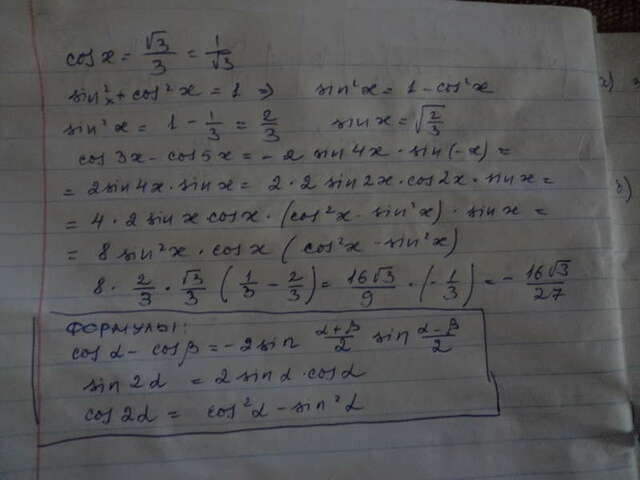 cos x = √3/3 = 1/√3
sin²x + cos²x = 1 ⇒ sin²x = 1 - cos²x
sin²x = 1 - 1/3 = 2/3 sin x = √(2/3)
cos 3x - cos 5x = -2 sin 4x · sin(-x) =
= 2 sin 4x · sin x = 2 · 2 sin 2x · cos 2x · sin x =
= 4 · 2 sin x cos x · (cos²x - sin²x) · sin x =
= 8 sin²x · cos x (cos²x - sin²x)
8 · 2/3 · √3/3 (1/3 - 2/3) = 16√3/9 · (-1/3) = - 16√3/27
ФОРМУЛЫ:
cos α - cos β = -2 sin (α+β)/2 sin (α-β)/2
sin 2α = 2 sin α · cos α
cos 2α = cos²α - sin²α